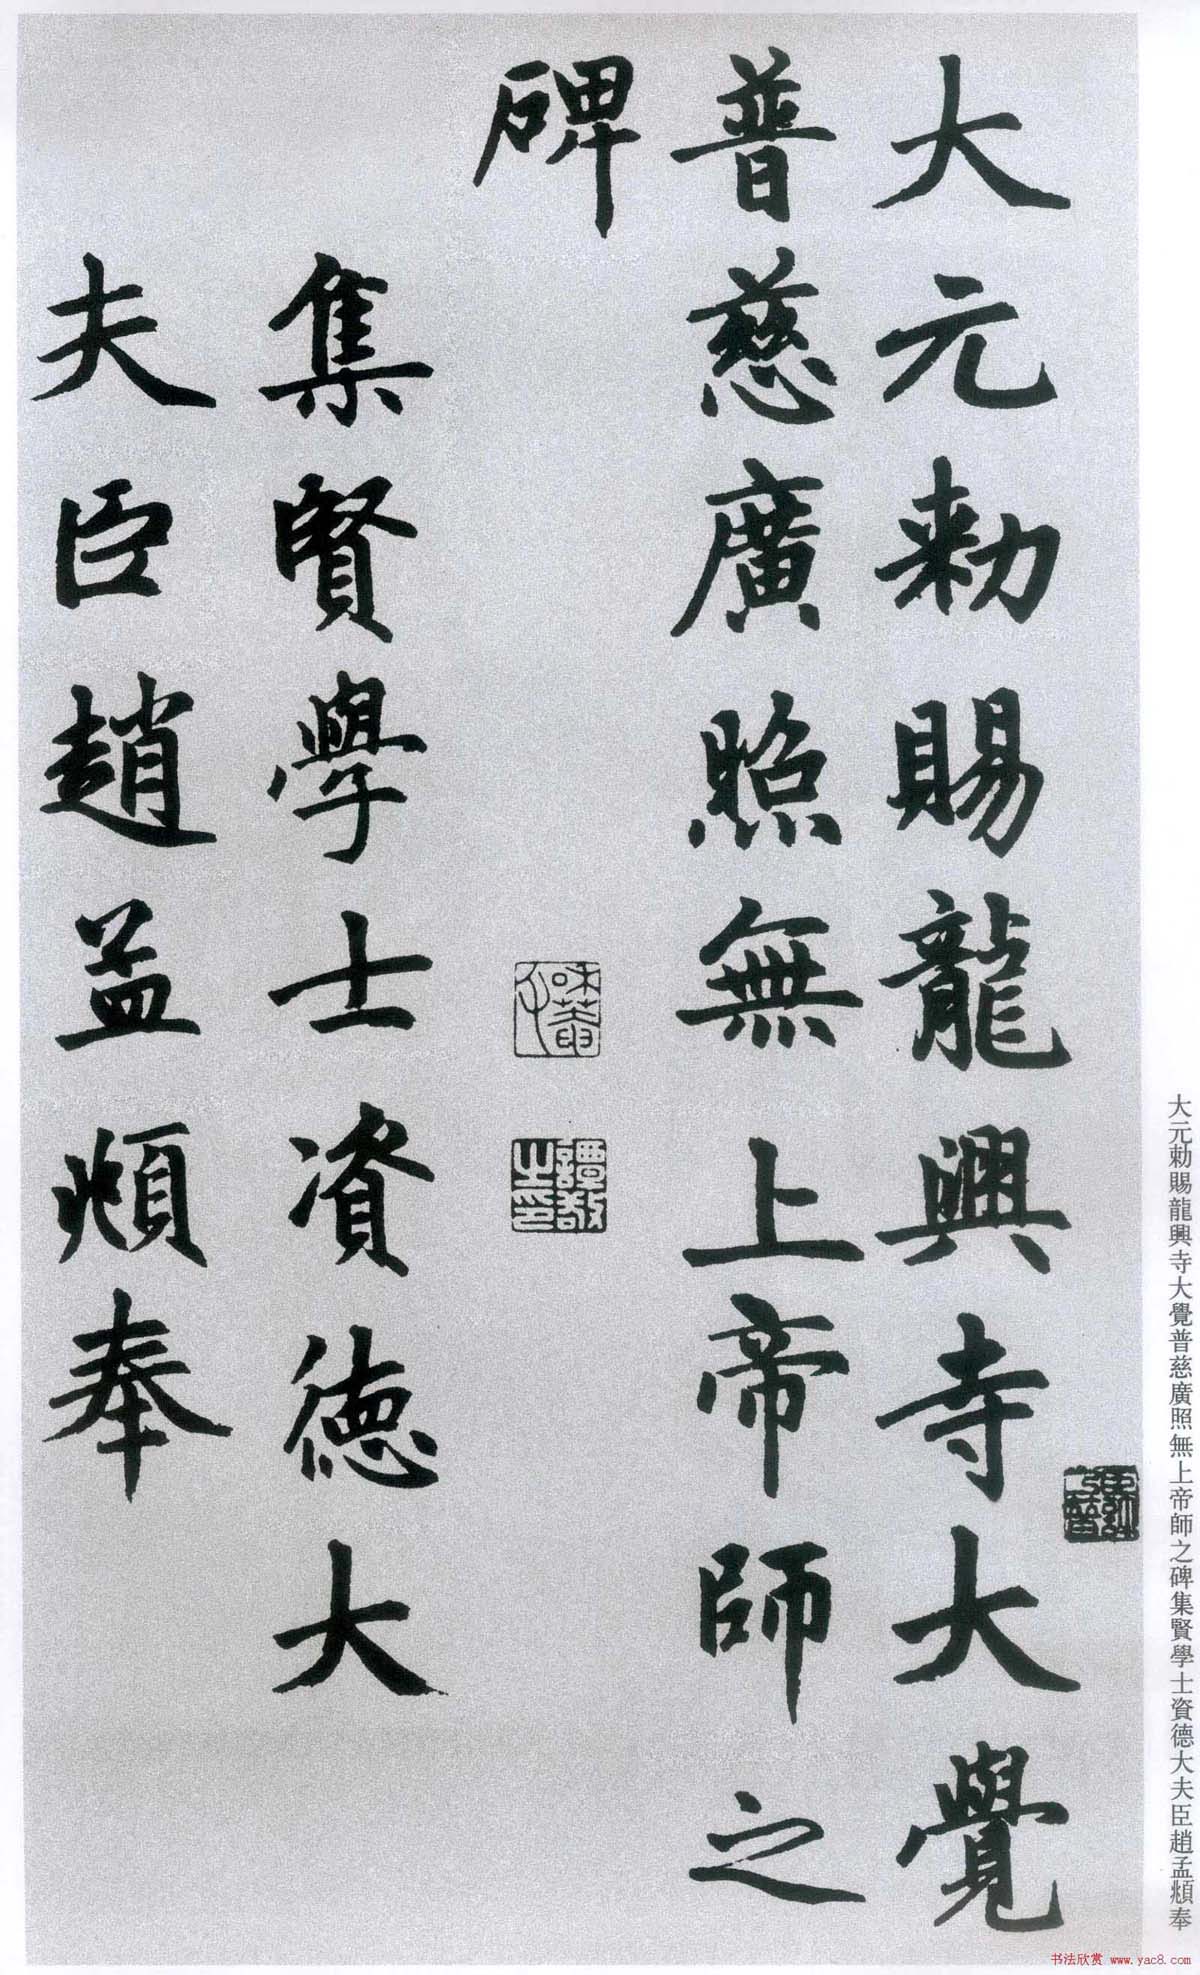 大元勑賜龍興寺大覺
普慈廣照無上帝師之
碑
集賢學士資德大
夫臣趙孟頫奉
譚敬之印
大元勑賜龍興寺大覺普慈廣照無上帝師之碑集賢學士資德大夫臣趙孟頫奉
书法欣赏 www.yac8.com